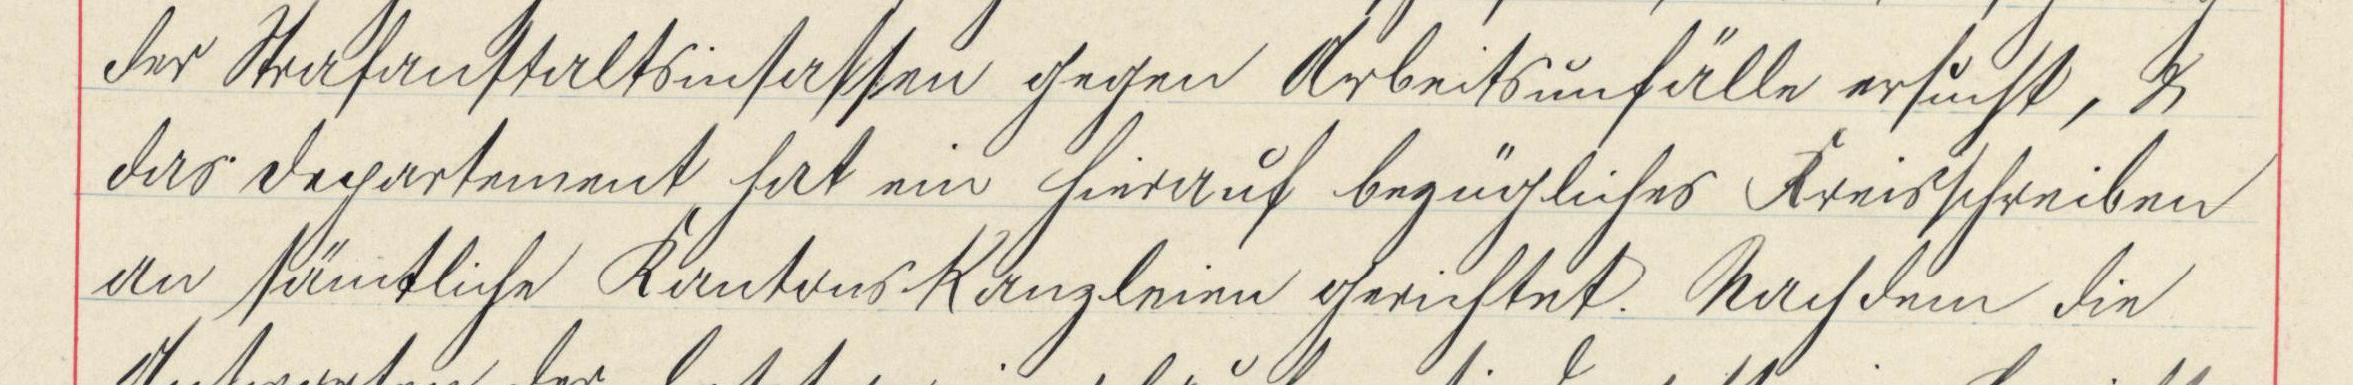 der Strafanstaltsinsassen gegen Arbeitsunfälle ersucht, &
das Departement hat ein hierauf bezügliches Kreisschreiben
an sämtliche Kantonskanzleien gerichtet. Nachdem die
Antworten der